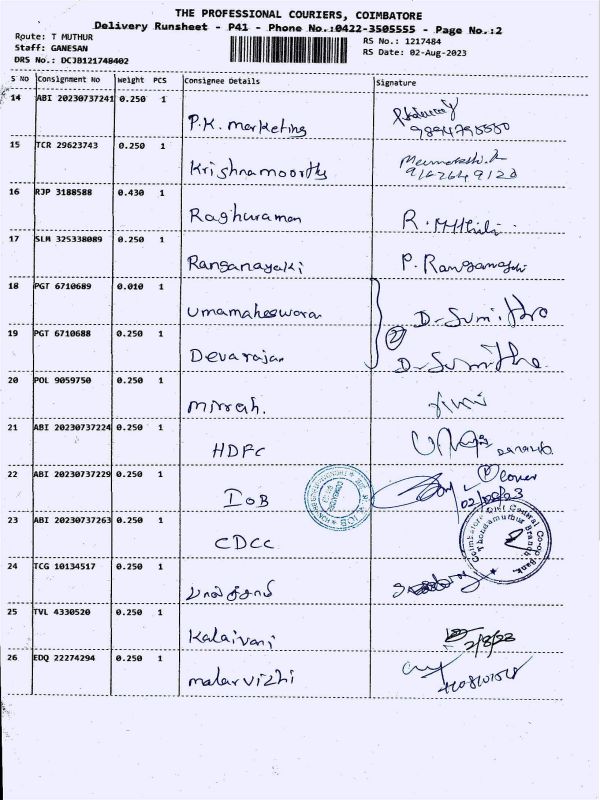 THE PROFESSIONAL COURIERS, COIMBATORE
Delivery Runsheet - P41 - Phone No.:0422-3505555 - Page No.:2
Route: T MUTHUR
RS No.: 1217484
Staff: GANESAN
RS Date: 02-Aug-2023
DRS No.: DCJB121748402
S No Consignment No Weight PCS Consignee Details Signature
14 ABI 20230737241 0.250 1
P.K. marketing
9894795550
15 TCR 29623743 0.250 1
Krishnamoorthy
16 RJP 3188588 0.430 1
Raghuraman R.
17 SLM 325338089 0.250 1
Ranganayaki P. Ranganayaki
18 PGT 6710689 0.010 1
umamaheswaran D-Sumitha
19 PGT 6710688 0.250 1
2
Devarajan D-Sumitha
20 POL 9059750 0.250 1
mirrah.
21 ABI 20230737224 0.250 1
HDFC
22 ABI 20230737229 0.250 1
IOB
cover
02/08/23
23 ABI 20230737263 0.250 1
CDCC
Coimbatore Dist Central Co-op Bank.
Thondamuthur Branch
24 TCG 10134517 0.250 1
25 TVL 4330520 0.250 1
Kalaivani 2/8/23
26 EDQ 22274294 0.250 1
malarvizhi